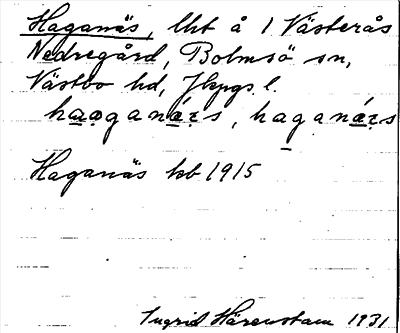 Haganäs, lht å 1 Västerås
Nedregård, Bolmsö sn,
Västbo hd, Jkpgs l.
haganä́s, haganä́s
Haganäs kb 1915
Ingrid Härenstam 1931